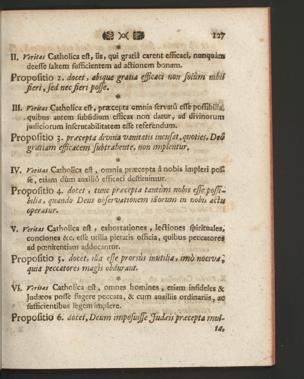 127
II. Veritas Catholica est, iis, qui gratiâ carent efficaci, nunquàm
deesse saltem sufficientem ad actionem bonam.
Propositio 2. docet, absque gratia efficaci non solùm nihil
fieri, sed nec fieri posse.
III. Veritas Catholica est, præcepta omnia servatu esse possibilia,
quibus autem subsidium efficax non datur, ad divinorum
judiciorum inscrutabilitatem esse referendum.
Propositio 3. præcepta divina vanitatis incusat, quoties, Deo
gratiam efficacem subtrahente, non implentur.
IV. Veritas Catholica est, omnia præcepta à nobis impleri pos-
se, etiam cùm auxiliô efficaci destituimur.
Propositio 4. docet, tunc præcepta tantùm nobis esse possi-
bilia, quando Deus observationem illorum in nobis actu
operatur.
V. Veritas Catholica est, exhortationes, lectiones spirituales,
conciones &c. esse utilia pietatis officia, quibus peccatores
ad pœnitentiam adducantur.
Propositio 5. docet, illa esse prorsus inutilia, imò noxia,
quia peccatores magis obdurant.
VI. Veritas Catholica est, omnes homines, etiam infideles &
Judæos posse fugere peccata, & cum auxiliis ordinariis, ac
sufficientibus legem implere.
Propositio 6. docet, Deum imposuisse Judæis præcepta mul-
ta,